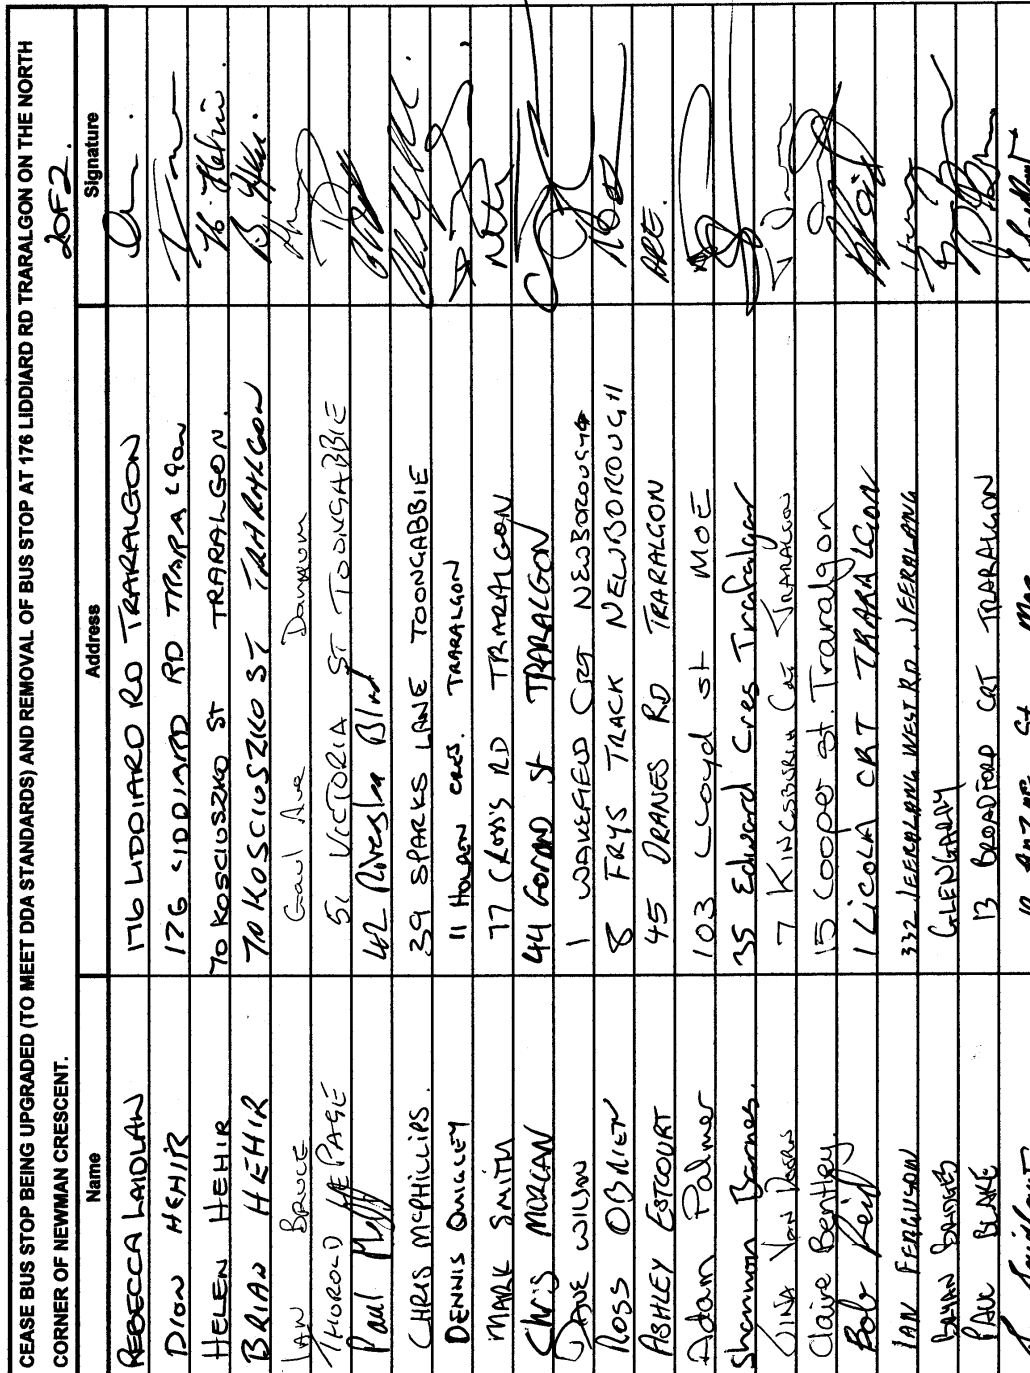 CEASE BUS STOP BEING UPGRADED (TO MEET DDA STANDARDS) AND REMOVAL OF BUS STOP AT 176 LIDDIARD RD TRARALGON ON THE NORTH
CORNER OF NEWMAN CRESCENT.
2OF2.
Name Address Signature
REBECCA LAIDLAW 176 LIDDIARD RD TRARALGON
DION HEHIR 176 LIDDIARD RD TRARALGON
HELEN HEHIR 70 KOSCIUSZKO ST TRARALGON. H. Hehir.
BRIAN HEHIR 70 KOSCIUSZKO ST TRARALGON
IAN BRUCE Gaul Ave
THOROLD LEPAGE 51 VICTORIA ST TOONGABBIE
Paul 42 Riverslea Blvd
CHRIS MCPHILLIPS. 39 SPARKS LANE TOONGABBIE
DENNIS QUIGLEY 11 HOLDEN CRES. TRARALGON
MARK SMITH 77 CROSS RD TRARALGON
CHRIS MORGAN 44 ST TRARALGON
DAVE WILSON 1 WAKEFIELD CRT NEWBOROUGH
ROSS OBRIEN 8 FRYS TRACK NEWBOROUGH
ASHLEY ESTCOURT 45 DRANES RD TRARALGON APE.
Adam Palmer 103 Lloyd st MOE
Shannon Barnes. 35 Edward Cres Trafalgar
VAN 7 KINGSBURGH CRT TRARALGON
Claire Bentley. 15 Cooper st. Traralgon
Bob Reid 1 LICOLA CRT TRARALGON
IAN FERGUSON 332 JEERALANG WEST RD. JEERALANG
GLENGARRY
PAUL BLAKE 13 BROADFORD CRT TRARALGON